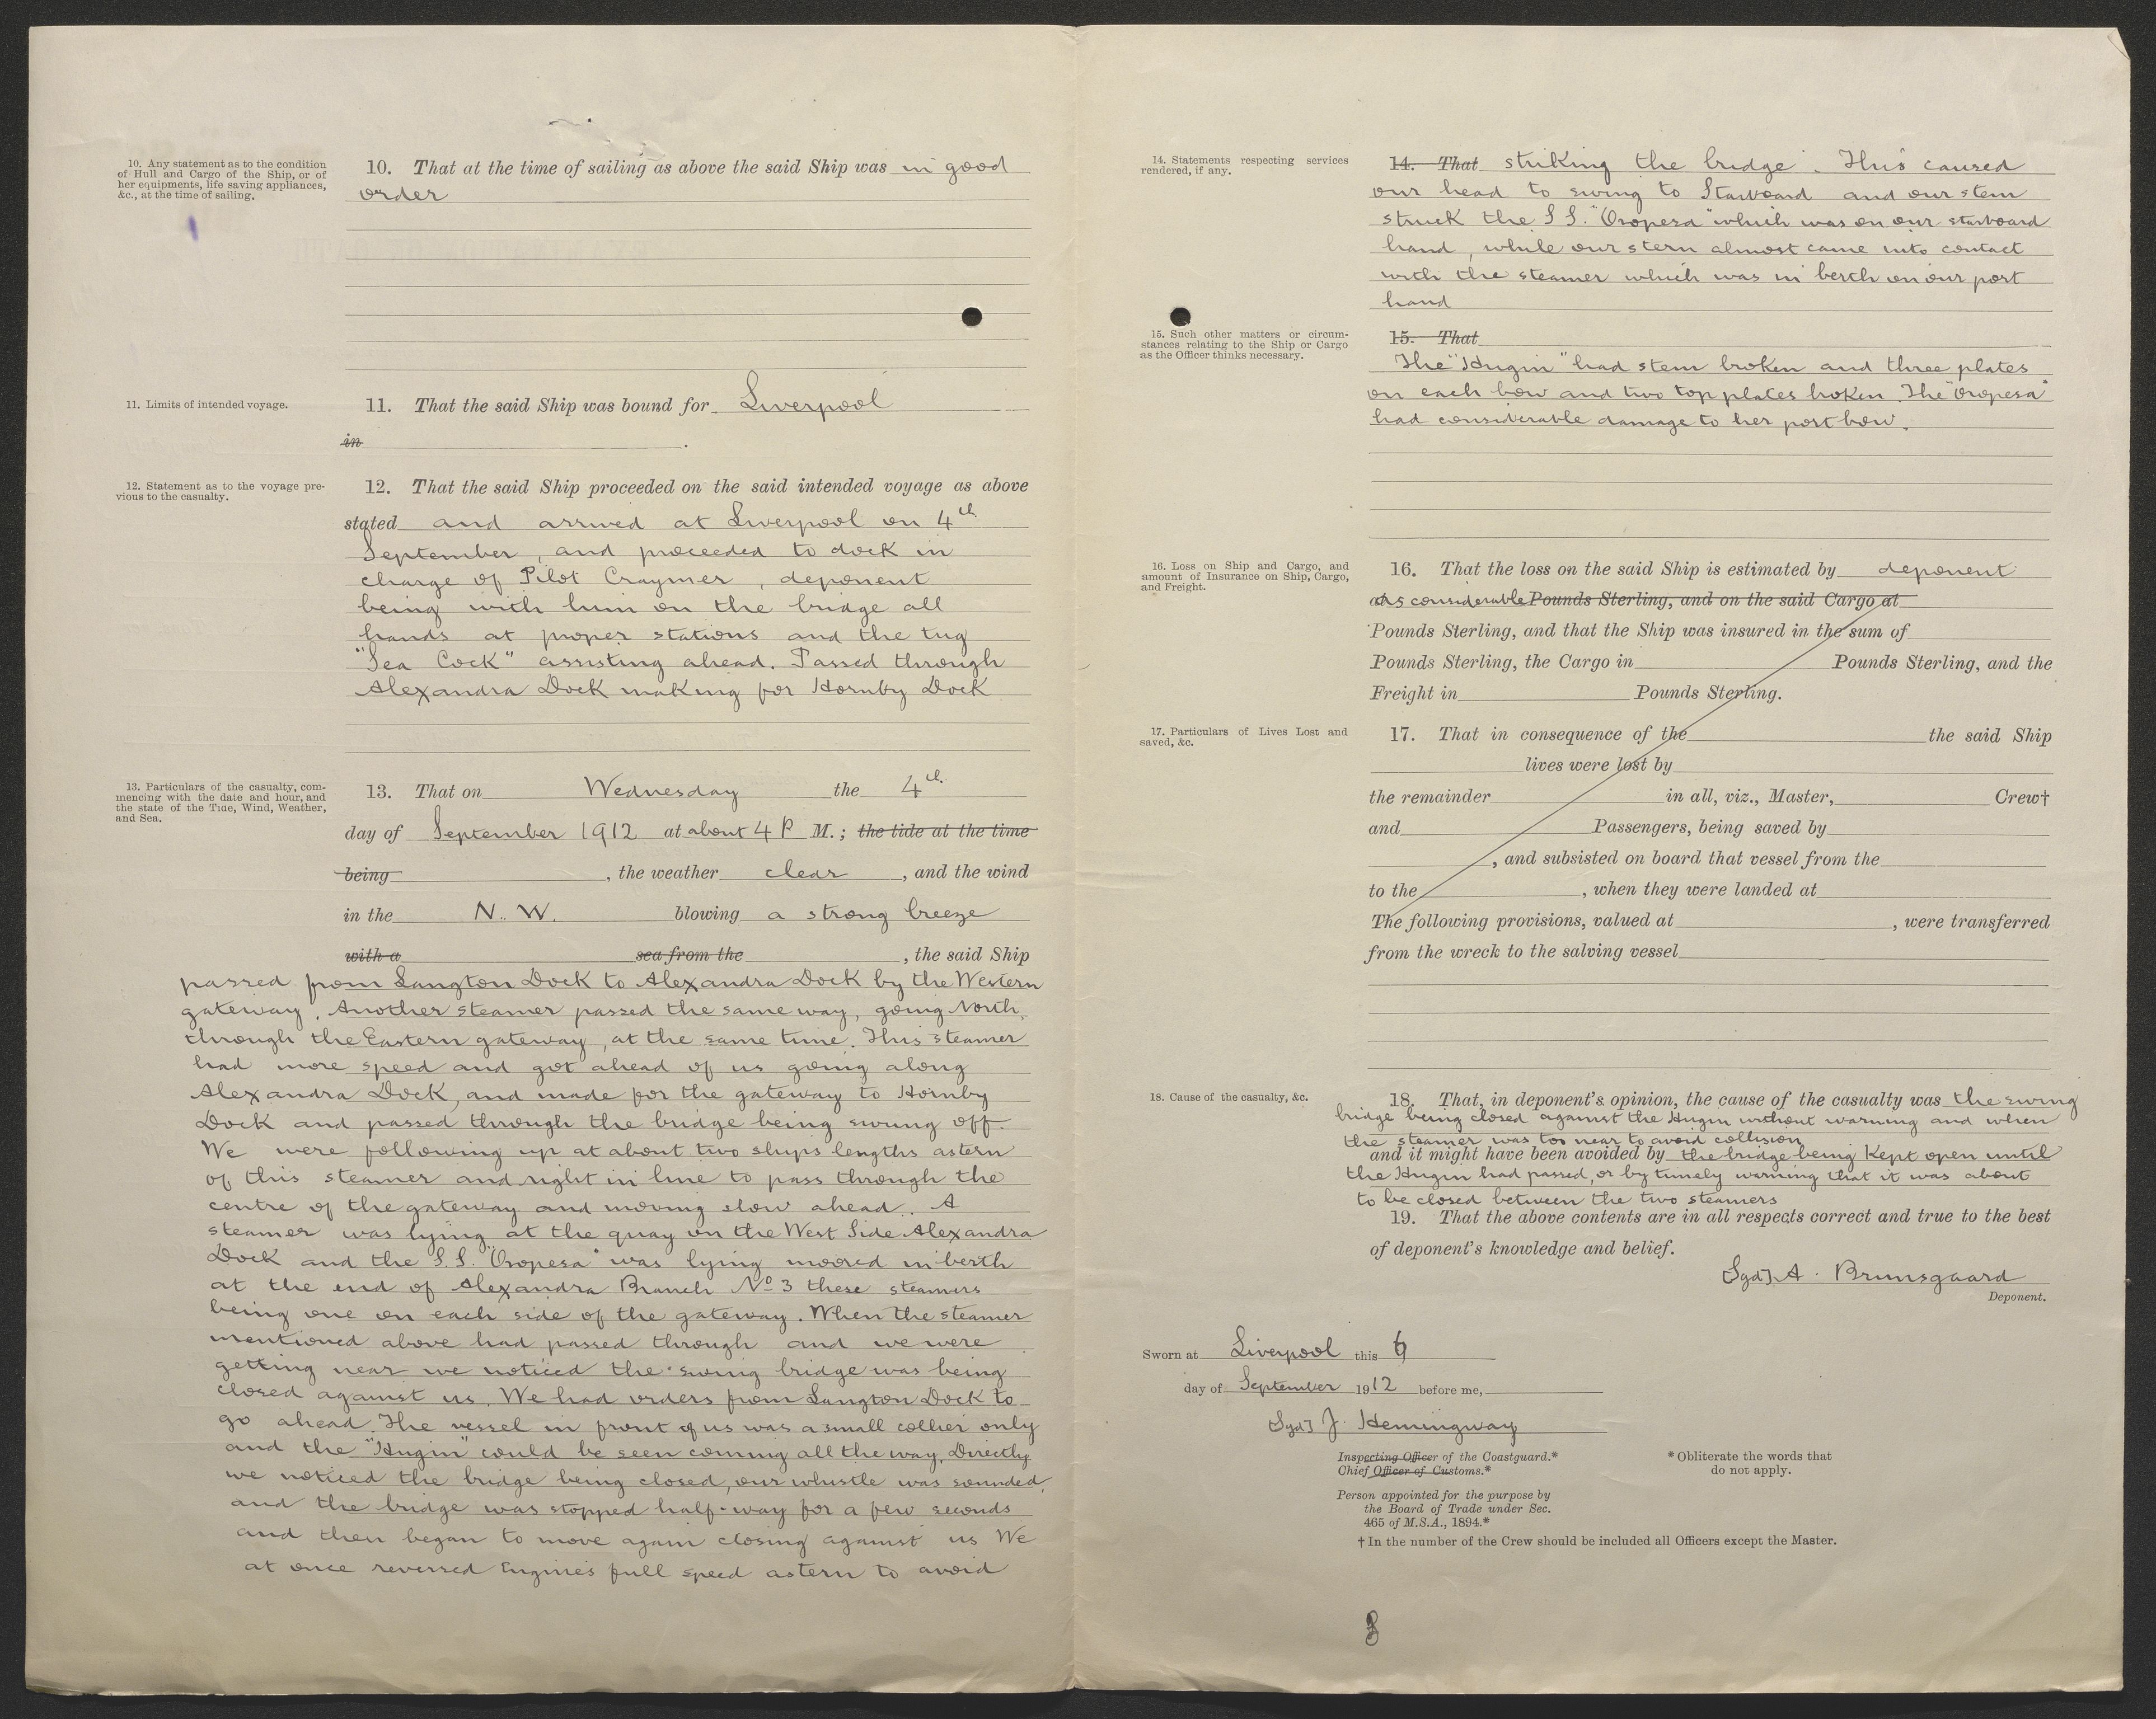 10. Any statement as to the condition
of Hull and Cargo of the Ship, or of
her equipments, life saving appliances,
&c., at the time of sailing.
10. That at the time of sailing as above the said Ship was in good
order
11. Limits of intended voyage.
11. That the said Ship was bound for Liverpool
in .
12. Statement as to the voyage pre-
vious to the casualty.
12. That the said Ship proceeded on the said intended voyage as above
stated and arrived at Liverpool on 4th
September, and proceeded to dock in
charge of Pilot Craymer, deponent
being with him on the bridge all
hands at proper stations and the tug
"Sea Cock" assisting ahead. Passed through
Alexandra Dock making for Hornby Dock
13. Particulars of the casualty, com-
mencing with the date and hour, and
the state of the Tide, Wind, Weather,
and Sea.
13. That on Wednesday the 4th
day of September 1912 at about 4 P M.; the tide at the time
being , the weather clear , and the wind
in the N. W. blowing a strong breeze
with a sea from the , the said Ship
passed from Langton Dock to Alexandra Dock by the Western
gateway. Another steamer passed the same way, going North,
through the Eastern gateway, at the same time. This steamer
had more speed and got ahead of us going along
Alexandra Dock, and made for the gateway to Hornby
Dock and passed through the bridge being swung off.
We were following up at about two ships lengths astern
of this steamer and right in line to pass through the
centre of the gateway and moving slow ahead. A
steamer was lying at the quay on the West Side Alexandra
Dock and the S.S. "Oropesa" was lying moored in berth
at the end of Alexandra Branch No 3 these steamers
being one on each side of the gateway. When the steamer
mentioned above had passed through and we were
getting near we noticed the swing bridge was being
closed against us. We had orders from Langton Dock to
go ahead. The vessel in front of us was a small collier only
and the "Hugin" could be seen coming all the way. Directly
we noticed the bridge being closed, our whistle was sounded,
and the bridge was stopped half-way for a few seconds
and then began to move again closing against us We
at once reversed Engines full speed astern to avoid
14. Statements respecting services
rendered, if any.
14. That striking the bridge. This caused
our head to swing to Starboard and our stem
struck the S S. "Oropesa" which was on our starboard
hand, while our stern almost came into contact
with the steamer which was in berth on our port
hand
15. Such other matters or circum-
stances relating to the Ship or Cargo
as the Officer thinks necessary.
15. That
The "Hugin" had stem broken and three plates
on each bow and two top plates broken. The "Oropesa"
had considerable damage to her port bow.
16. Loss on Ship and Cargo, and
amount of Insurance on Ship, Cargo,
and Freight.
16. That the loss on the said Ship is estimated by deponent
as considerable Pounds Sterling, and on the said Cargo at
Pounds Sterling, and that the Ship was insured in the sum of
Pounds Sterling, the Cargo in Pounds Sterling, and the
Freight in Pounds Sterling.
17. Particulars of Lives Lost and
saved, &c.
17. That in consequence of the the said Ship
lives were lost by
the remainder in all, viz., Master, Crew†
and Passengers, being saved by
, and subsisted on board that vessel from the
to the , when they were landed at
The following provisions, valued at , were transferred
from the wreck to the salving vessel
18. Cause of the casualty, &c.
18. That, in deponent's opinion, the cause of the casualty was the swing
bridge being closed against the Hugin without warning and when
the steamer was too near to avoid collision
and it might have been avoided by the bridge being kept open until
the Hugin had passed, or by timely warning that it was about
to be closed between the two steamers
19. That the above contents are in all respects correct and true to the best
of deponent's knowledge and belief.
[Sgd]. A. Brunsgaard
Deponent.
Sworn at Liverpool this 6
day of September 1912 before me,
[Sgd] J. Hemingway
Inspecting Officer of the Coastguard.*
Chief Officer of Customs.*
Person appointed for the purpose by
the Board of Trade under Sec.
465 of M.S.A., 1894.*
* Obliterate the words that
do not apply.
† In the number of the Crew should be included all Officers except the Master.